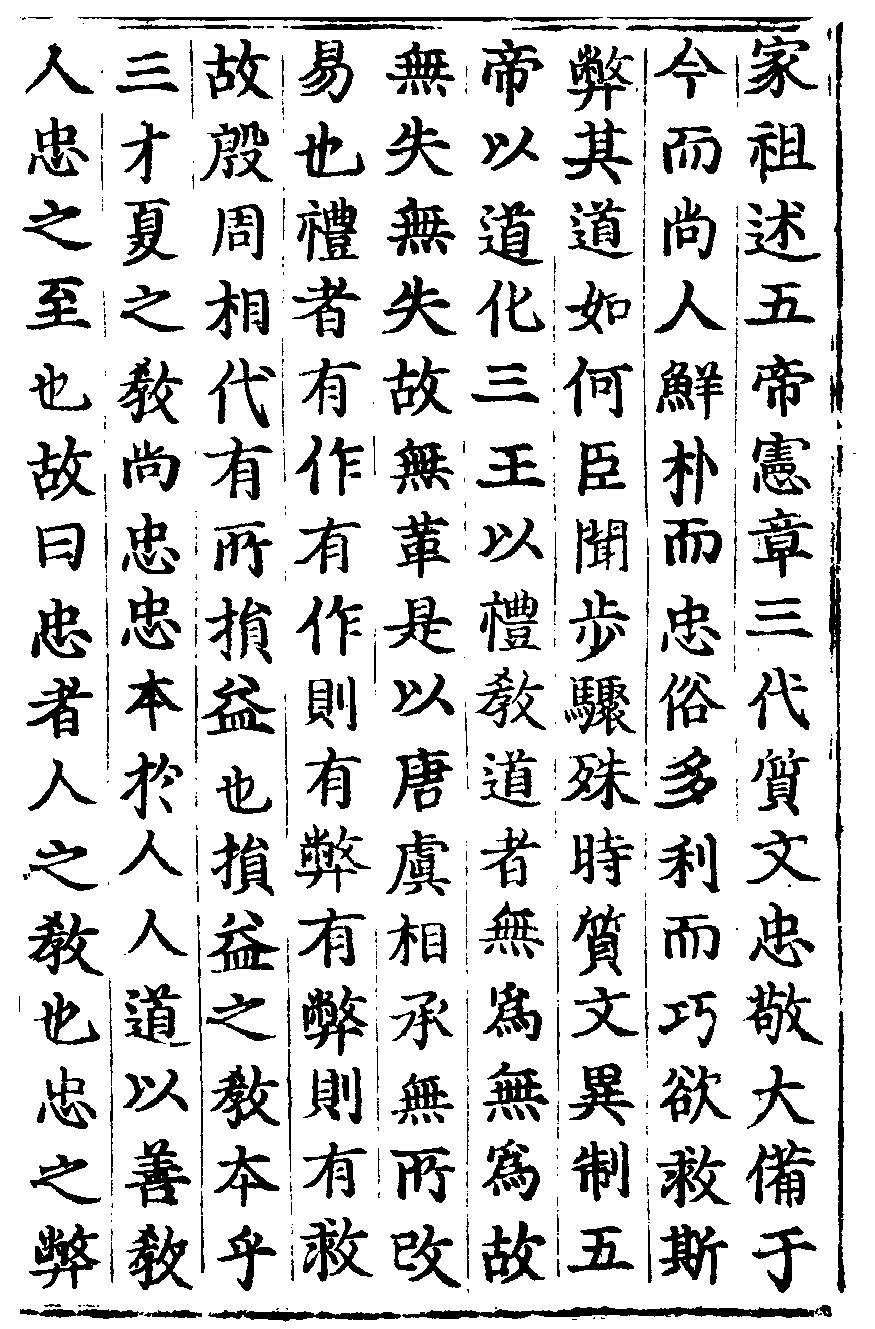 家祖述五帝憲章三代質文忠敬大備于
今而尚人鮮朴而忠俗多利而巧欲救斯
弊其道如何臣聞步驟殊時質文異制五
帝以道化三王以禮教道者無為無為故
無失無失故無革是以唐虞相承無所改
易也禮者有作有作則有弊有弊則有救
故殷周相代有所損益也損益之教本乎
三才夏之教尚忠忠本於人人道以善教
人忠之至也故曰忠者人之教也忠之弊